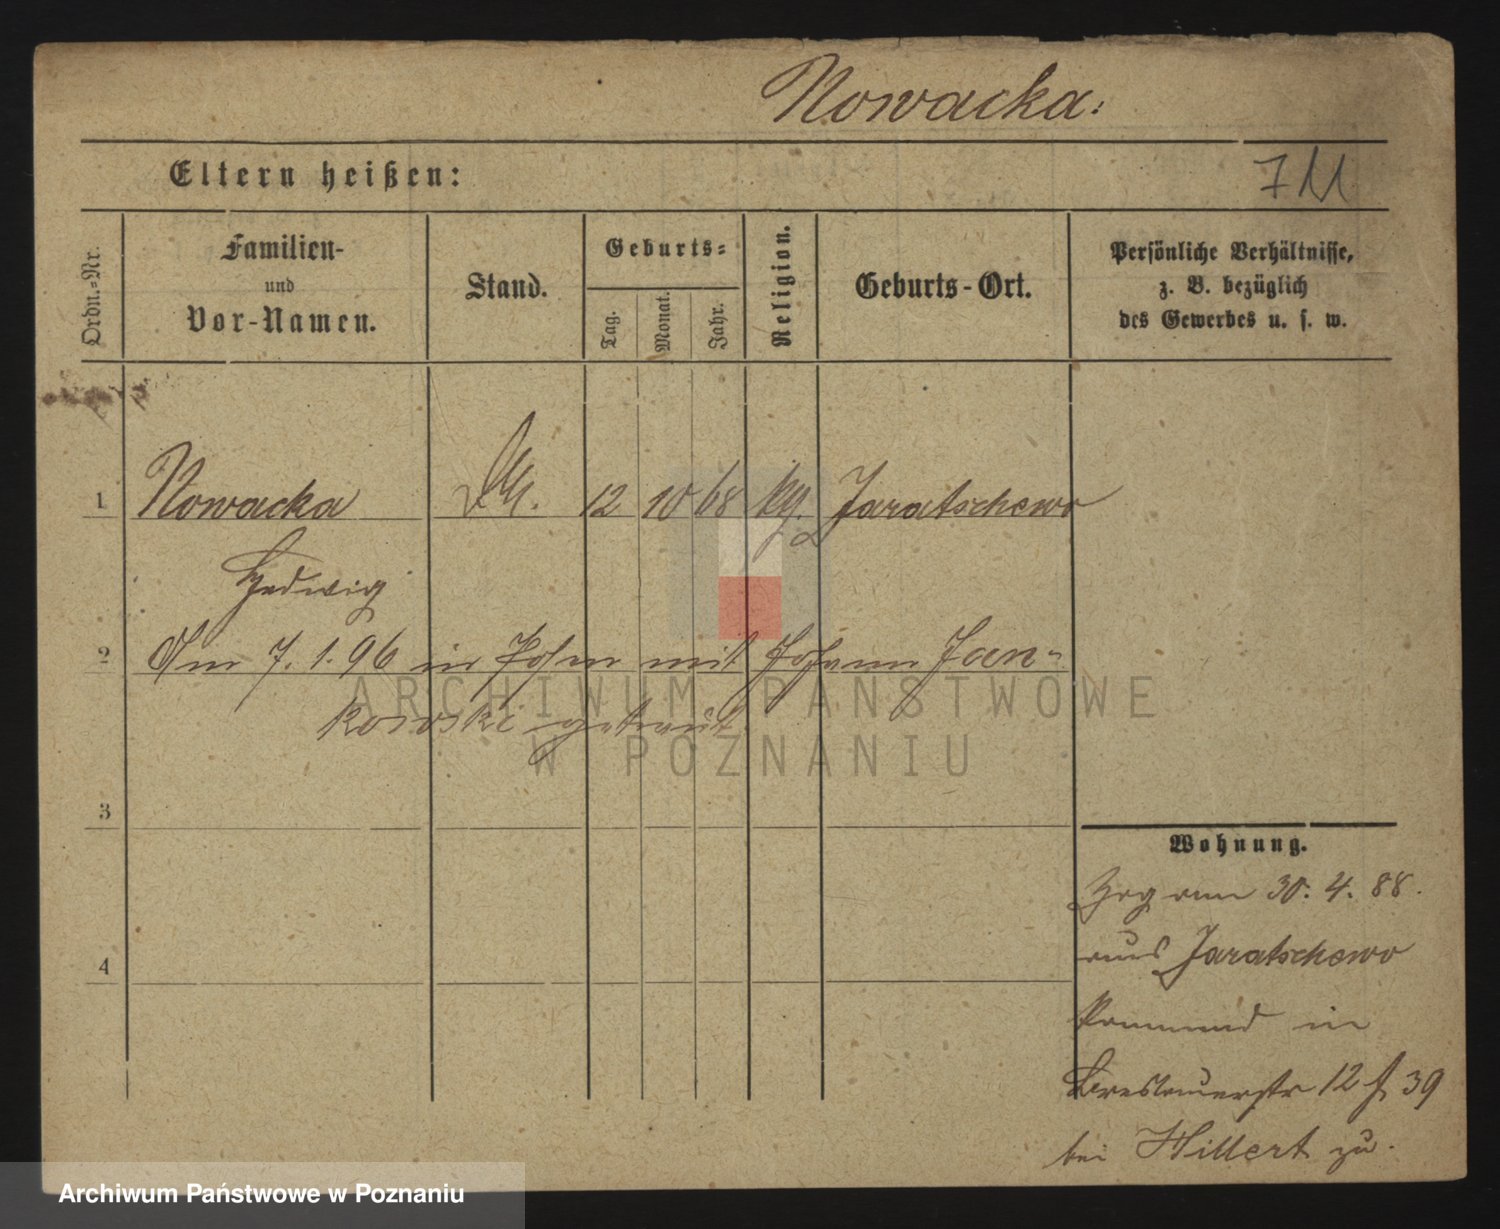 Nowacka:
Eltern heißen:
711
Ordn.-Nr.
Familien-
und
Vor-Namen.
Stand.
Geburts-
Tag.
Monat.
Jahr.
Religion.
Geburts-Ort.
Persönliche Verhältnisse,
z. B. bezüglich
des Gewerbes u. s. w.
1 Nowacka 12 10 68 Jaratschewo
Hedwig
2 Am 7. 1. 96 in Posen mit Johann Jan-
kowski getraut
ARCHIWUM PAŃSTWOWE
W POZNANIU
3
Wohnung.
Zog am 30. 4. 88.
aus Jaratschewo
4
kommend in
Breslauerstr 12 39
bei Hillert zu.
Archiwum Państwowe w Poznaniu